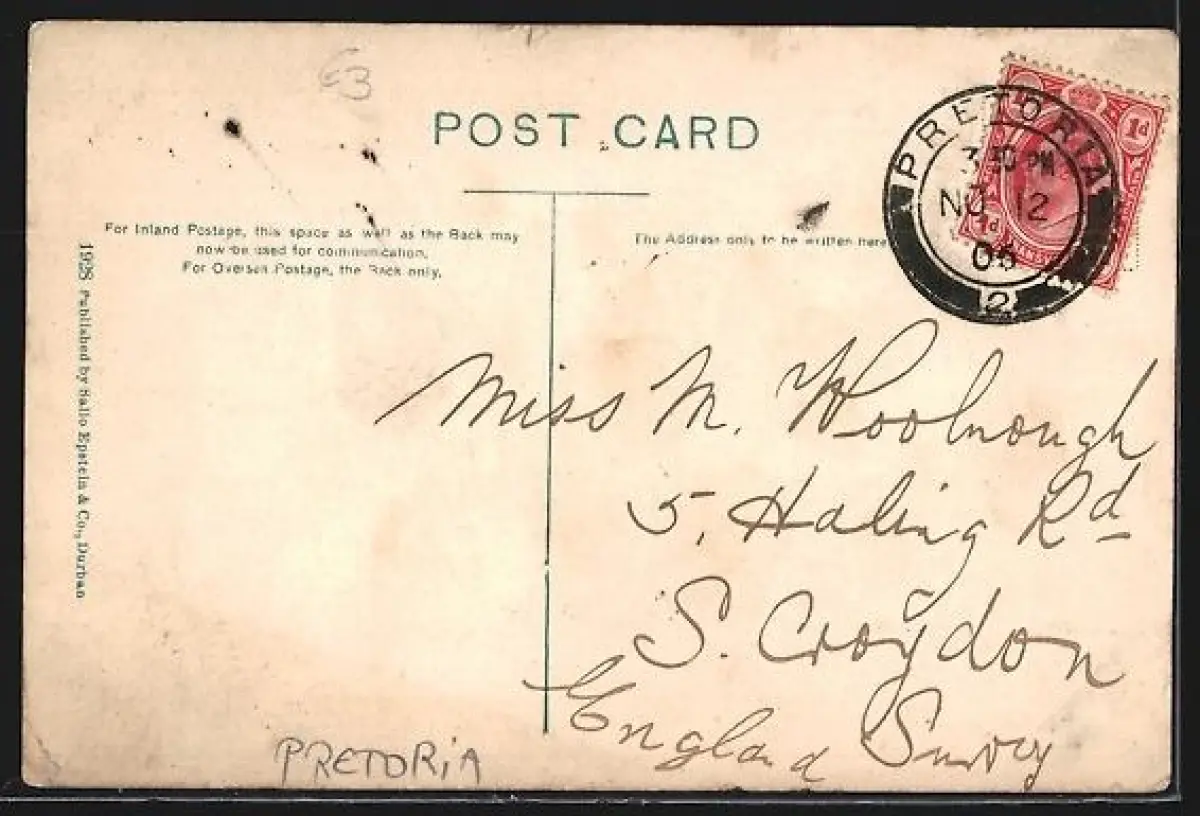 £3
POST CARD
For Inland Postage, this space as well as the Back may
now be used for communication.
For Oversea Postage, the Back only.
The Address only to be written here
1928 Published by Sallo Epstein & Co., Durban
PRETORIA
3 30 PM
NO 12
06
2
1d
1d
Miss M. Woolnough
5, Haling Rd
S. Croydon
England Surrey
PRETORIA